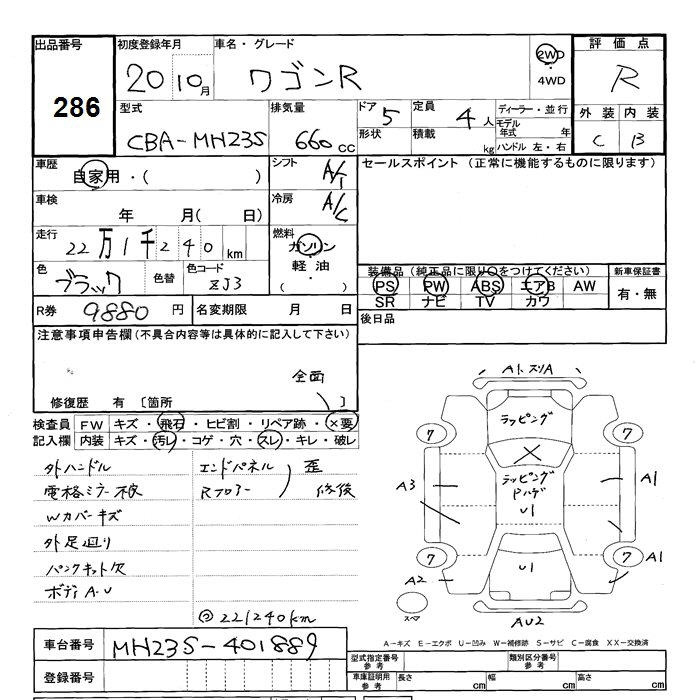 出品番号
286
初度登録年月
20 10月
車名・グレード
ワゴンR
2WD
・
4WD
評価点
R
外装 内装
C B
型式
CBA-MH23S
排気量
660cc
ドア 5
形状
定員 4人
積載 kg
ディーラー・並行
モデル年式 年
ハンドル 左・右
車歴
自家用・( )
シフト A/T
セールスポイント(正常に機能するものに限ります)
車検
年 月( 日)
冷房 A/C
走行
22万1千240km
燃料
ガソリン
・
軽油
( )
色 ブラック
色替
色コード ZJ3
装備品(純正品に限り○をつけてください)
PS PW ABS エアB AW
SR ナビ TV カワ
新車保証書
有・無
R券 9880円
名変期限 月 日
後日品
注意事項申告欄(不具合内容等は具体的に記入して下さい)
全面
修復歴 有 〔箇所 〕
検査員記入欄
FW キズ・飛石・ヒビ割・リペア跡・×要
内装 キズ・汚レ・コゲ・穴・スレ・キレ・破レ
外ハンドル
電格ミラー不良
Wカバーキズ
外足廻り
パンクキット欠
ボディA・U
エンドパネル
Rフロアー
歪
修復
221240km
A1、スリA
ラッピング
7 7
×
ラッピング
Pハゲ
U1
A3 A1
7 7 A1
A2
U1
スペア
AU2
A-キズ E-エクボ U-凹み W-補修跡 S-サビ C-腐食 XX-交換済
車台番号 MH23S-401889
登録番号
型式指定番号
参考
類別区分番号
参考
車庫証明用
参考
長さ cm 幅 cm 高さ cm